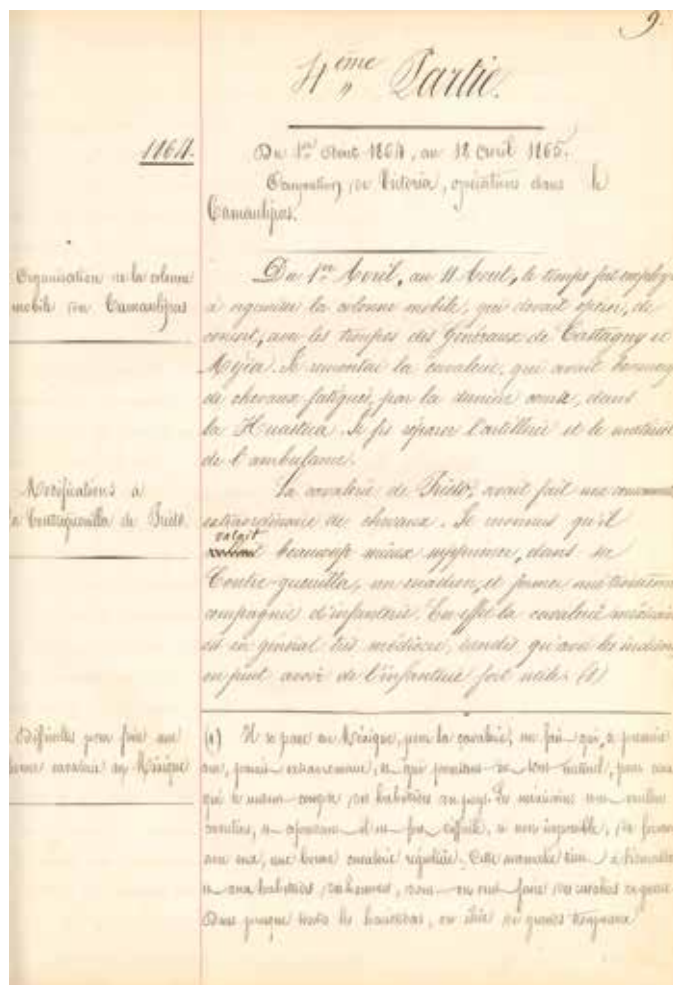 9.
4ème Partie.
1864.
Du 1er Août 1864, au 18 Avril 1865.
Occupation de Victoria, opérations dans le
Tamaulipas.
Organisation de la colonne
mobile du Tamaulipas
Du 1er Avril, au 11 Avril, le temps fut employé
à organiser la colonne mobile, qui devait opérer, de
concert, avec les troupes des Généraux de Castagny et
Méjia. Je remontai la cavalerie, qui avait beaucoup
de chevaux fatigués, par la dernière course, dans
la Huasteca. Je fis réparer l'artillerie et le matériel
de l'ambulance.
Modifications à
la Contreguerilla de Prieto.
La cavalerie de Prieto, avait fait une consommation
extraordinaire de chevaux. Je reconnus qu'il
valait
beaucoup mieux supprimer, dans sa
Contre-guerilla, un escadron, et former une troisième
compagnie d'infanterie. En effet la cavalerie mexicaine
est en général très médiocre, tandis qu'avec les indiens,
on peut avoir de l'infanterie fort utile. (1)
Difficultés pour faire une
bonne cavalerie au Mexique
(1) Il se passe au Mexique, pour la cavalerie, un fait qui, à première
vue, paraît extraordinaire, et qui pourtant est tout naturel, pour ceux
qui se rendent compte des habitudes du pays. Les mexicains sont
cavaliers, et cependant il est fort difficile, si non impossible, de former
avec eux, une bonne cavalerie régulière. Cette anomalie tient à
et aux habitudes des hommes, dont on veut faire des cavaliers de guerre.
Dans presque toutes les haciendas, on élève de grands troupeaux